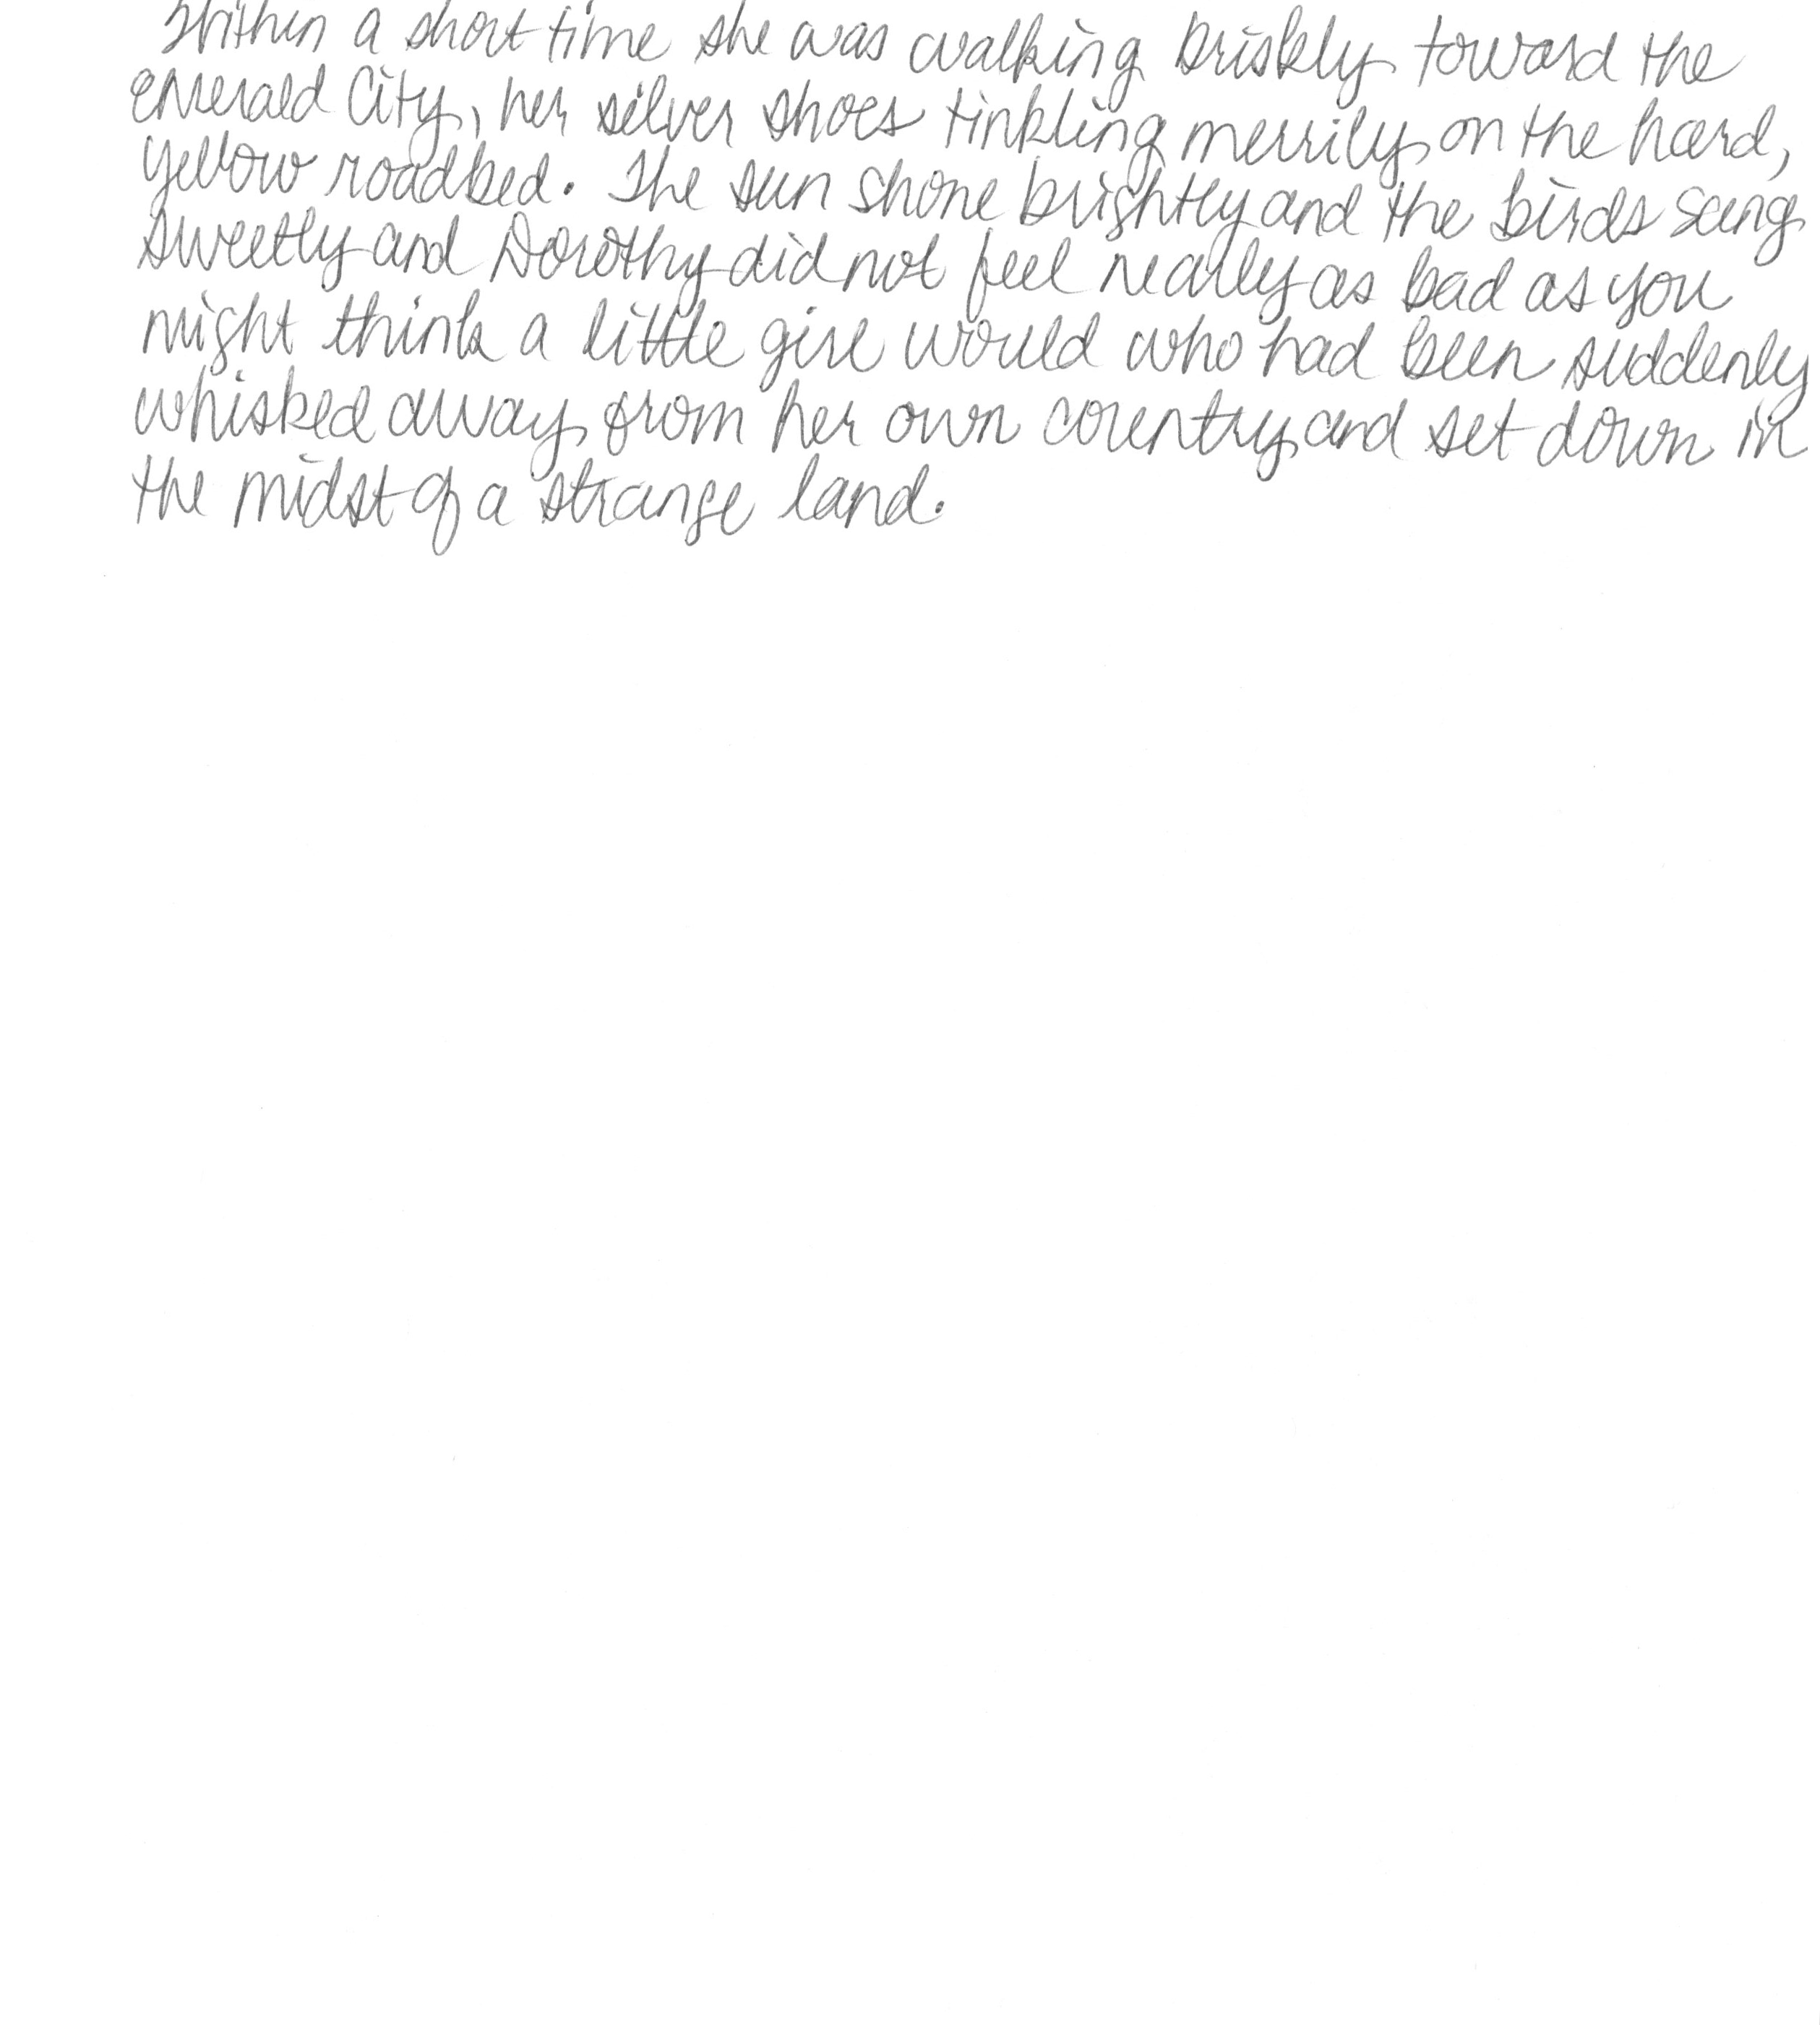 Within a short time she was walking briskly toward the
Emerald City, her silver shoes tinkling merrily on the hard,
yellow roadbed. The sun shone brightly and the birds sang
sweetly and Dorothy did not feel nearly as bad as you
might think a little girl would who had been suddenly
whisked away from her own country and set down in
the midst of a strange land.